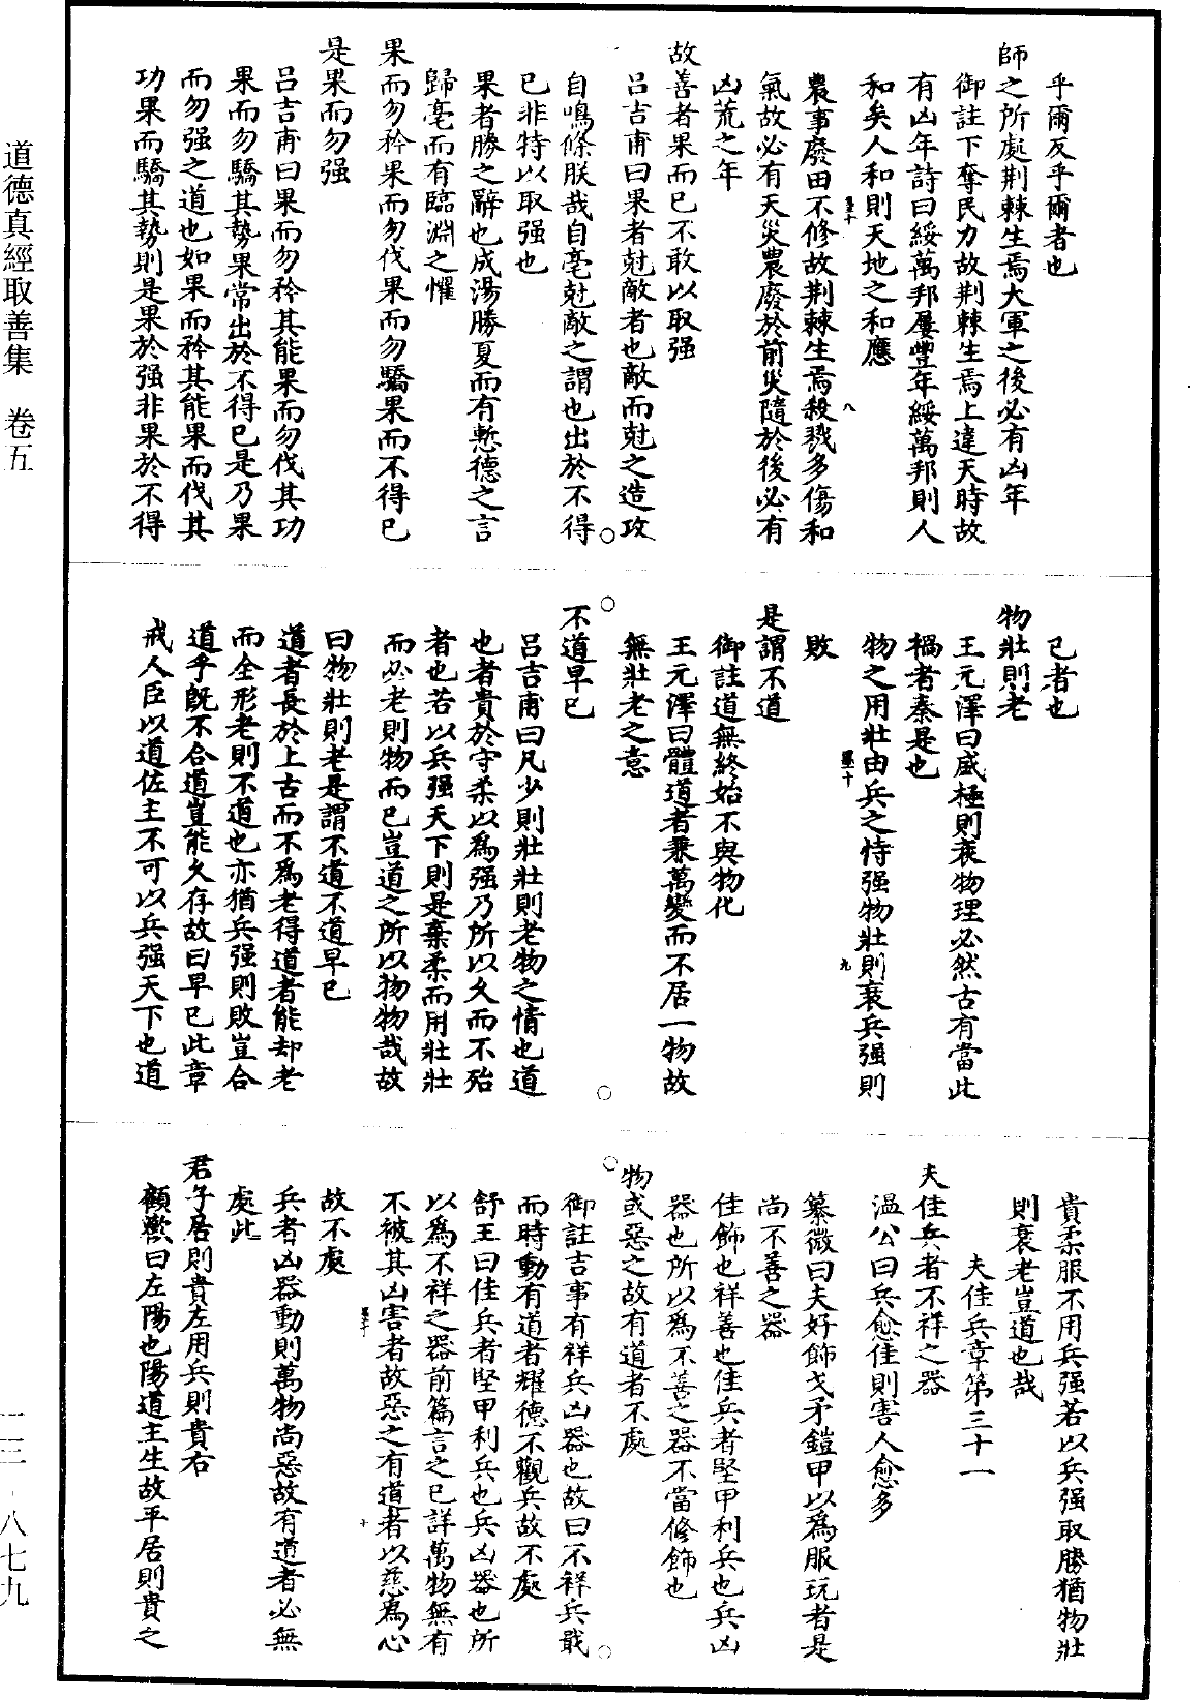 乎爾反乎爾者也
師之所處荆棘生焉大軍之後必有凶年
御註下奪民力故荆棘生焉上違天時故
有凶年詩曰綏萬邦屢豐年綏萬邦則人
和矣人和則天地之和應
農事廢田不修故荆棘生焉殺戮多傷和
氣故必有天災農廢於前災隨於後必有
凶荒之年
故善者果而已不敢以取强
呂吉甫曰果者尅敵者也敵而尅之造攻
自鳴條朕哉自亳尅敵之謂也出於不得
已非特以取强也
果者勝之辭也成湯勝夏而有慙德之言
歸亳而有臨淵之懼
果而勿矜果而勿伐果而勿驕果而不得已
是果而勿强
呂吉甫曰果而勿矜其能果而勿伐其功
果而勿驕其勢果常出於不得已是乃果
而勿强之道也如果而矜其能果而伐其
功果而驕其勢則是果於强非果於不得
已者也
物壯則老
王元澤曰盛極則衰物理必然古有當此
禍者秦是也
物之用壯由兵之恃强物壯則衰兵强則
敗
是謂不道
御註道無終始不與物化
王元澤曰體道者乘萬變而不居一物故
無壯老之意
不道早已
呂吉甫曰凡少則壯壯則老物之情也道
也者貴於守柔以為强乃所以久而不殆
者也若以兵强天下則是棄柔而用壯壯
而必老則物而已豈道之所以物物哉故
曰物壯則老是謂不道不道早已
道者長於上古而不爲老得道者能却老
而全形老則不道也亦猶兵强則敗豈合
道乎旣不合道豈能久存故曰早已此章
戒人臣以道佐主不可以兵强天下也道
貴柔服不用兵强若以兵强取勝猶物壯
則衰老豈道也哉
夫佳兵章第三十一
夫佳兵者不祥之器
溫公曰兵愈佳則害人愈多
纂微曰夫好飾戈矛鎧甲以為服玩者是
尚不善之器
佳飾也祥善也佳兵者堅甲利兵也兵凶
器也所以為不善之器不當修飾也
物或惡之故有道者不處
御註吉事有祥兵凶器也故曰不祥兵戢
而時動有道者耀德不觀兵故不處
舒王曰佳兵者堅甲利兵也兵凶器也所
以為不祥之器前篇言之已詳萬物無有
不被其凶害者故惡之有道者以慈爲心
故不處
兵者凶器動則萬物尚惡故有道者必無
處此
君子居則貴左用兵則貴右
顧歡曰左陽也陽道主生故平居則貴之
道德真經取善集　卷五
一三－八七九